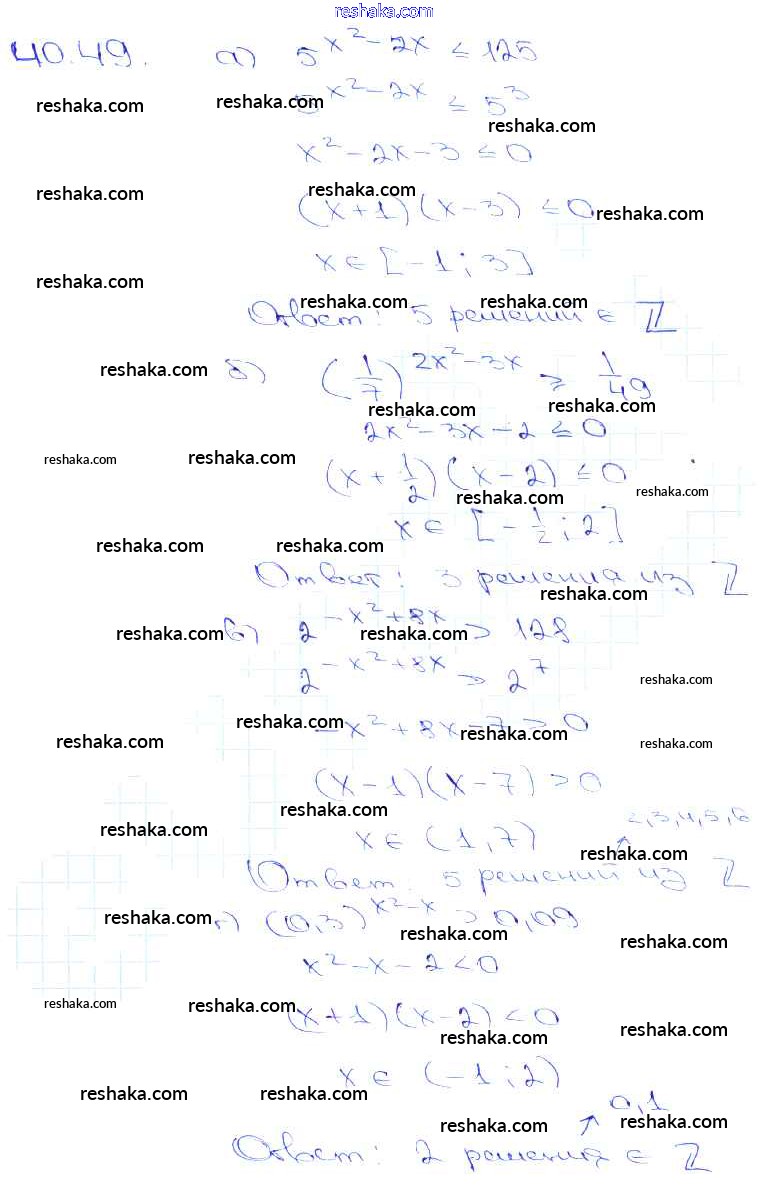 reshaka.com
40.49. а) 5^{x²-2x} ≤ 125
reshaka.com reshaka.com 5^{x²-2x} ≤ 5³
reshaka.com
x² - 2x - 3 ≤ 0
reshaka.com reshaka.com
(x+1)(x-3) ≤ 0 reshaka.com
x ∈ [-1; 3]
reshaka.com
reshaka.com reshaka.com
Ответ: 5 решений ∈ ℤ
reshaka.com б) (1/7)^{2x²-3x} ≥ 1/49
reshaka.com reshaka.com
2x² - 3x - 2 ≤ 0
reshaka.com reshaka.com (x + 1/2)(x - 2) ≤ 0
reshaka.com reshaka.com
x ∈ [-1/2; 2]
reshaka.com reshaka.com
Ответ: 3 решения из ℤ
reshaka.com
reshaka.com в) 2^{-x²+8x} > 128 reshaka.com
2^{-x²+8x} > 2⁷ reshaka.com
reshaka.com -x² + 8x - 7 > 0 reshaka.com
reshaka.com reshaka.com
(x-1)(x-7) > 0
reshaka.com
reshaka.com x ∈ (1, 7) 2, 3, 4, 5, 6
reshaka.com
Ответ: 5 решений из ℤ
reshaka.com г) (0,3)^{x²-x} > 0,09
reshaka.com reshaka.com
x² - x - 2 < 0
reshaka.com reshaka.com (x+1)(x-2) < 0
reshaka.com reshaka.com
x ∈ (-1; 2)
reshaka.com reshaka.com 0, 1
reshaka.com reshaka.com
Ответ: 2 решения ∈ ℤ